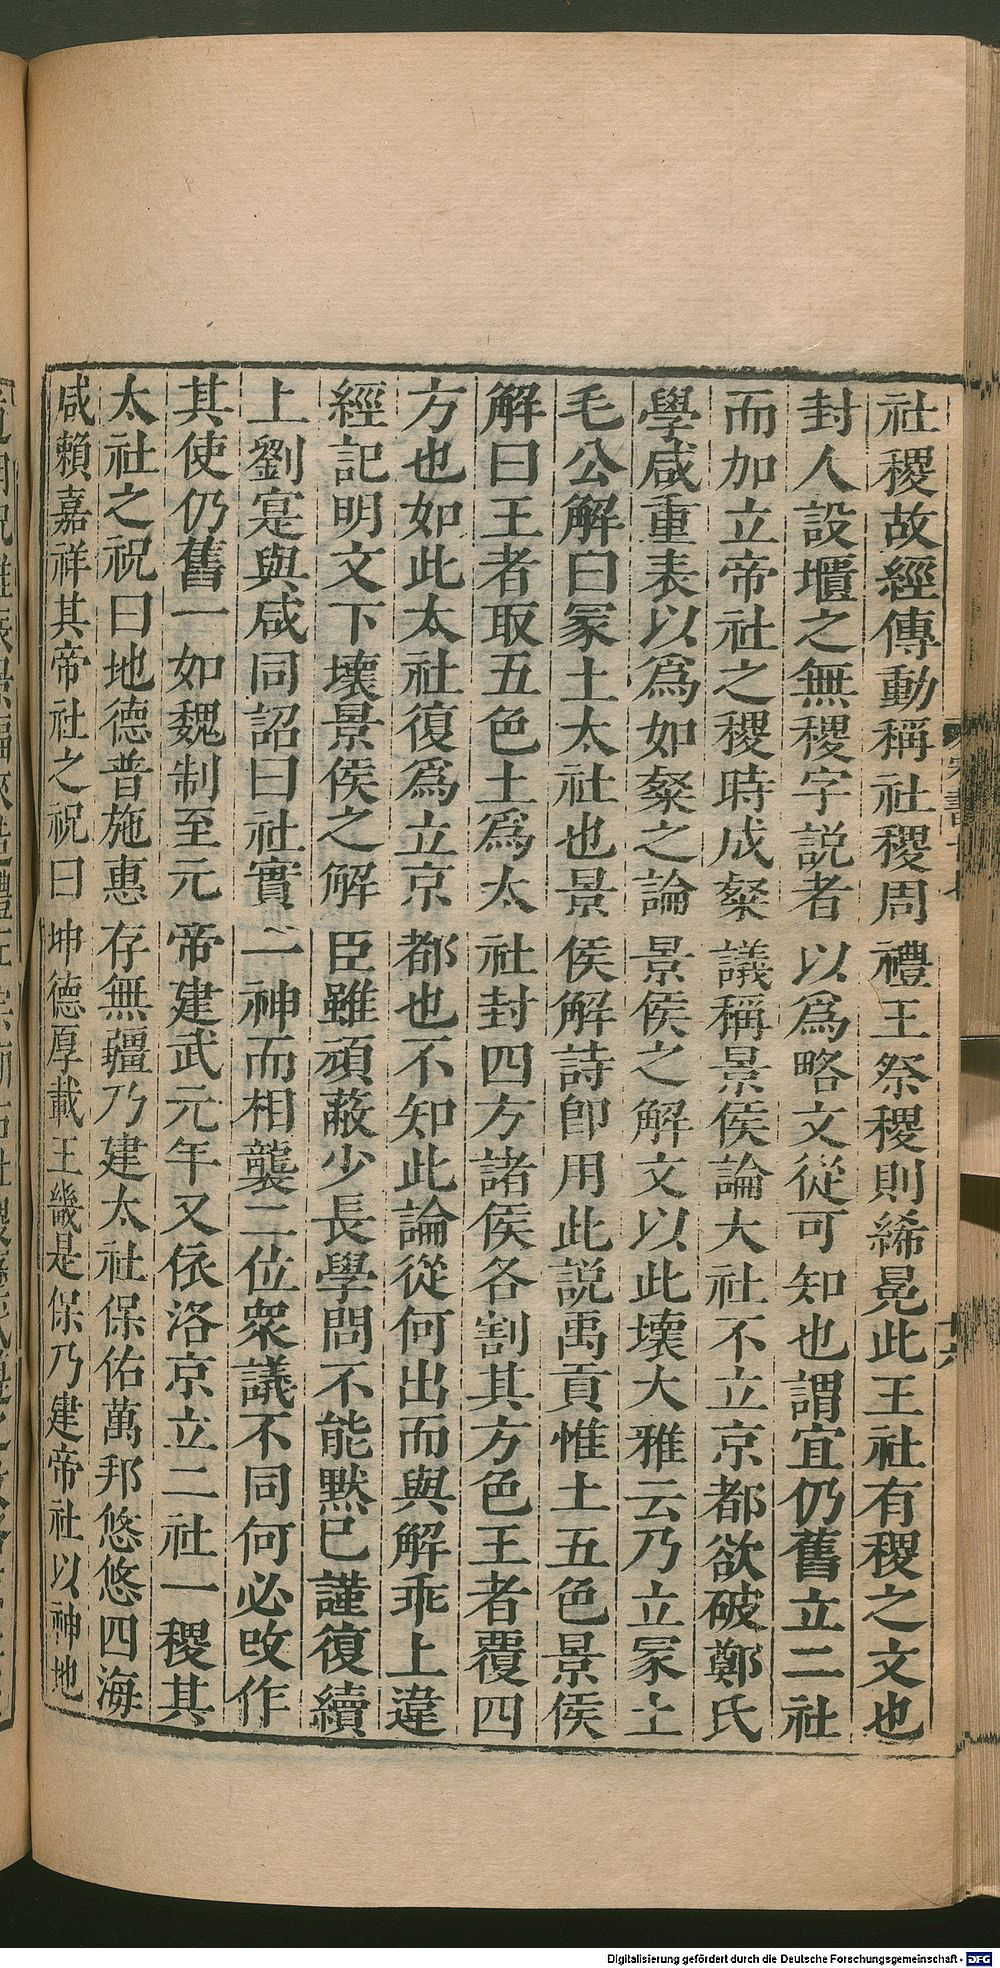 社稷故經傳動稱社稷周禮王祭稷則絺冕此王社有稷之文也
封人設壝之無稷字説者以爲略文從可知也謂宜仍舊立二社
而加立帝社之稷時成粲議稱景侯論大社不立京都欲破鄭氏
學咸重表以爲如粲之論景侯之解文以此壞大雅云乃立冡土
毛公解曰冡土太社也景侯解詩即用此説禹貢惟土五色景侯
解曰王者取五色土爲太社封四方諸侯各割其方色王者覆四
方也如此太社復爲立京都也不知此論從何出而與解乖上違
經記明文下壞景侯之解臣雖頑蔽少長學問不能默已謹復續
上劉寔與咸同詔曰社實一神而相襲二位衆議不同何必改作
其使仍舊一如魏制至元帝建武元年又依洛京立二社一稷其
太社之祝曰地德普施惠存無疆乃建太社保佑萬邦悠悠四海
咸賴嘉祥其帝社之祝曰坤德厚載王畿是保乃建帝社以神地
十六
Digitalisierung gefördert durch die Deutsche Forschungsgemeinschaft - DFG